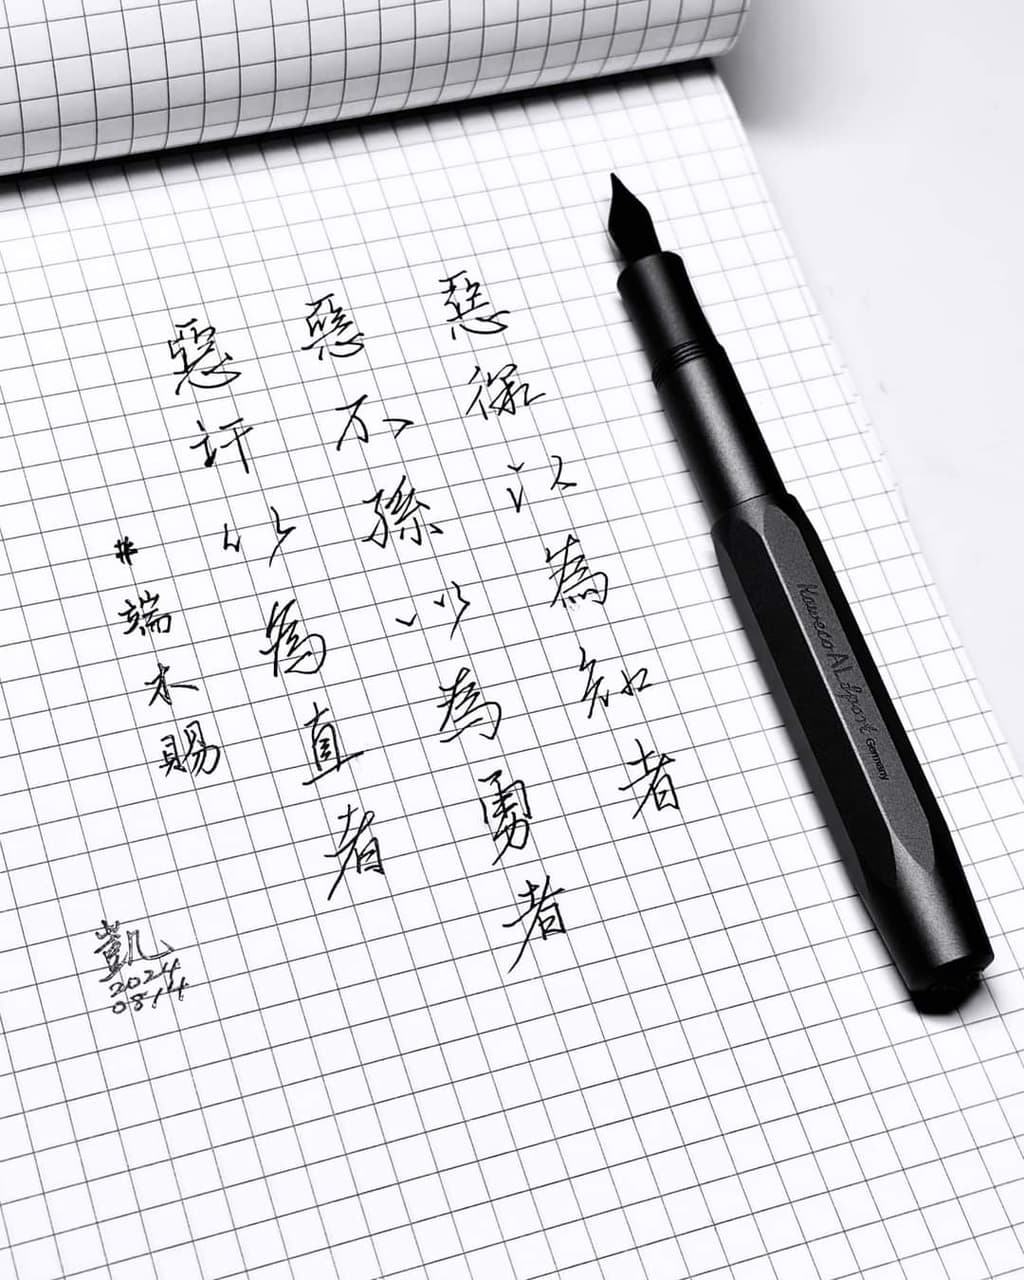 惡徼以為知者
惡不孫以為勇者
惡訐以為直者
#端木賜
凱
2024
0814
Kaweco AL Sport Germany